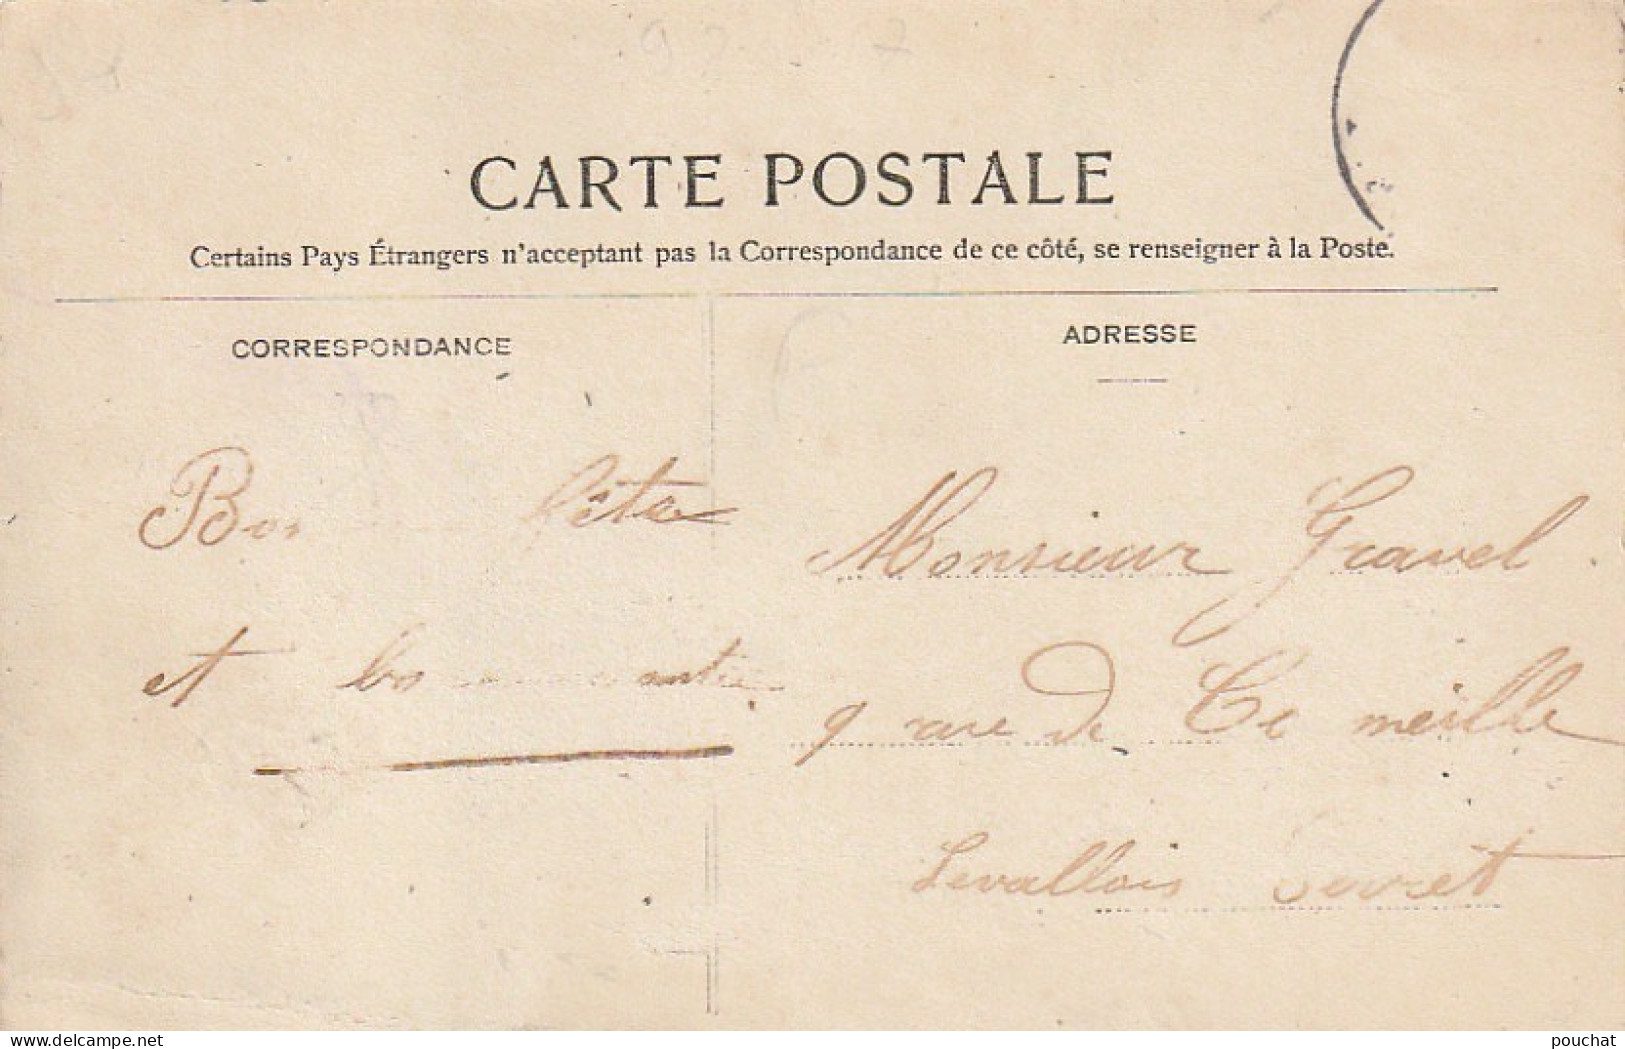 CARTE POSTALE
Certains Pays Étrangers n'acceptant pas la Correspondance de ce côté, se renseigner à la Poste.
CORRESPONDANCE
ADRESSE
Bon fête
et
Monsieur Gravel
9 rue de
Levallois Perret
pouchat